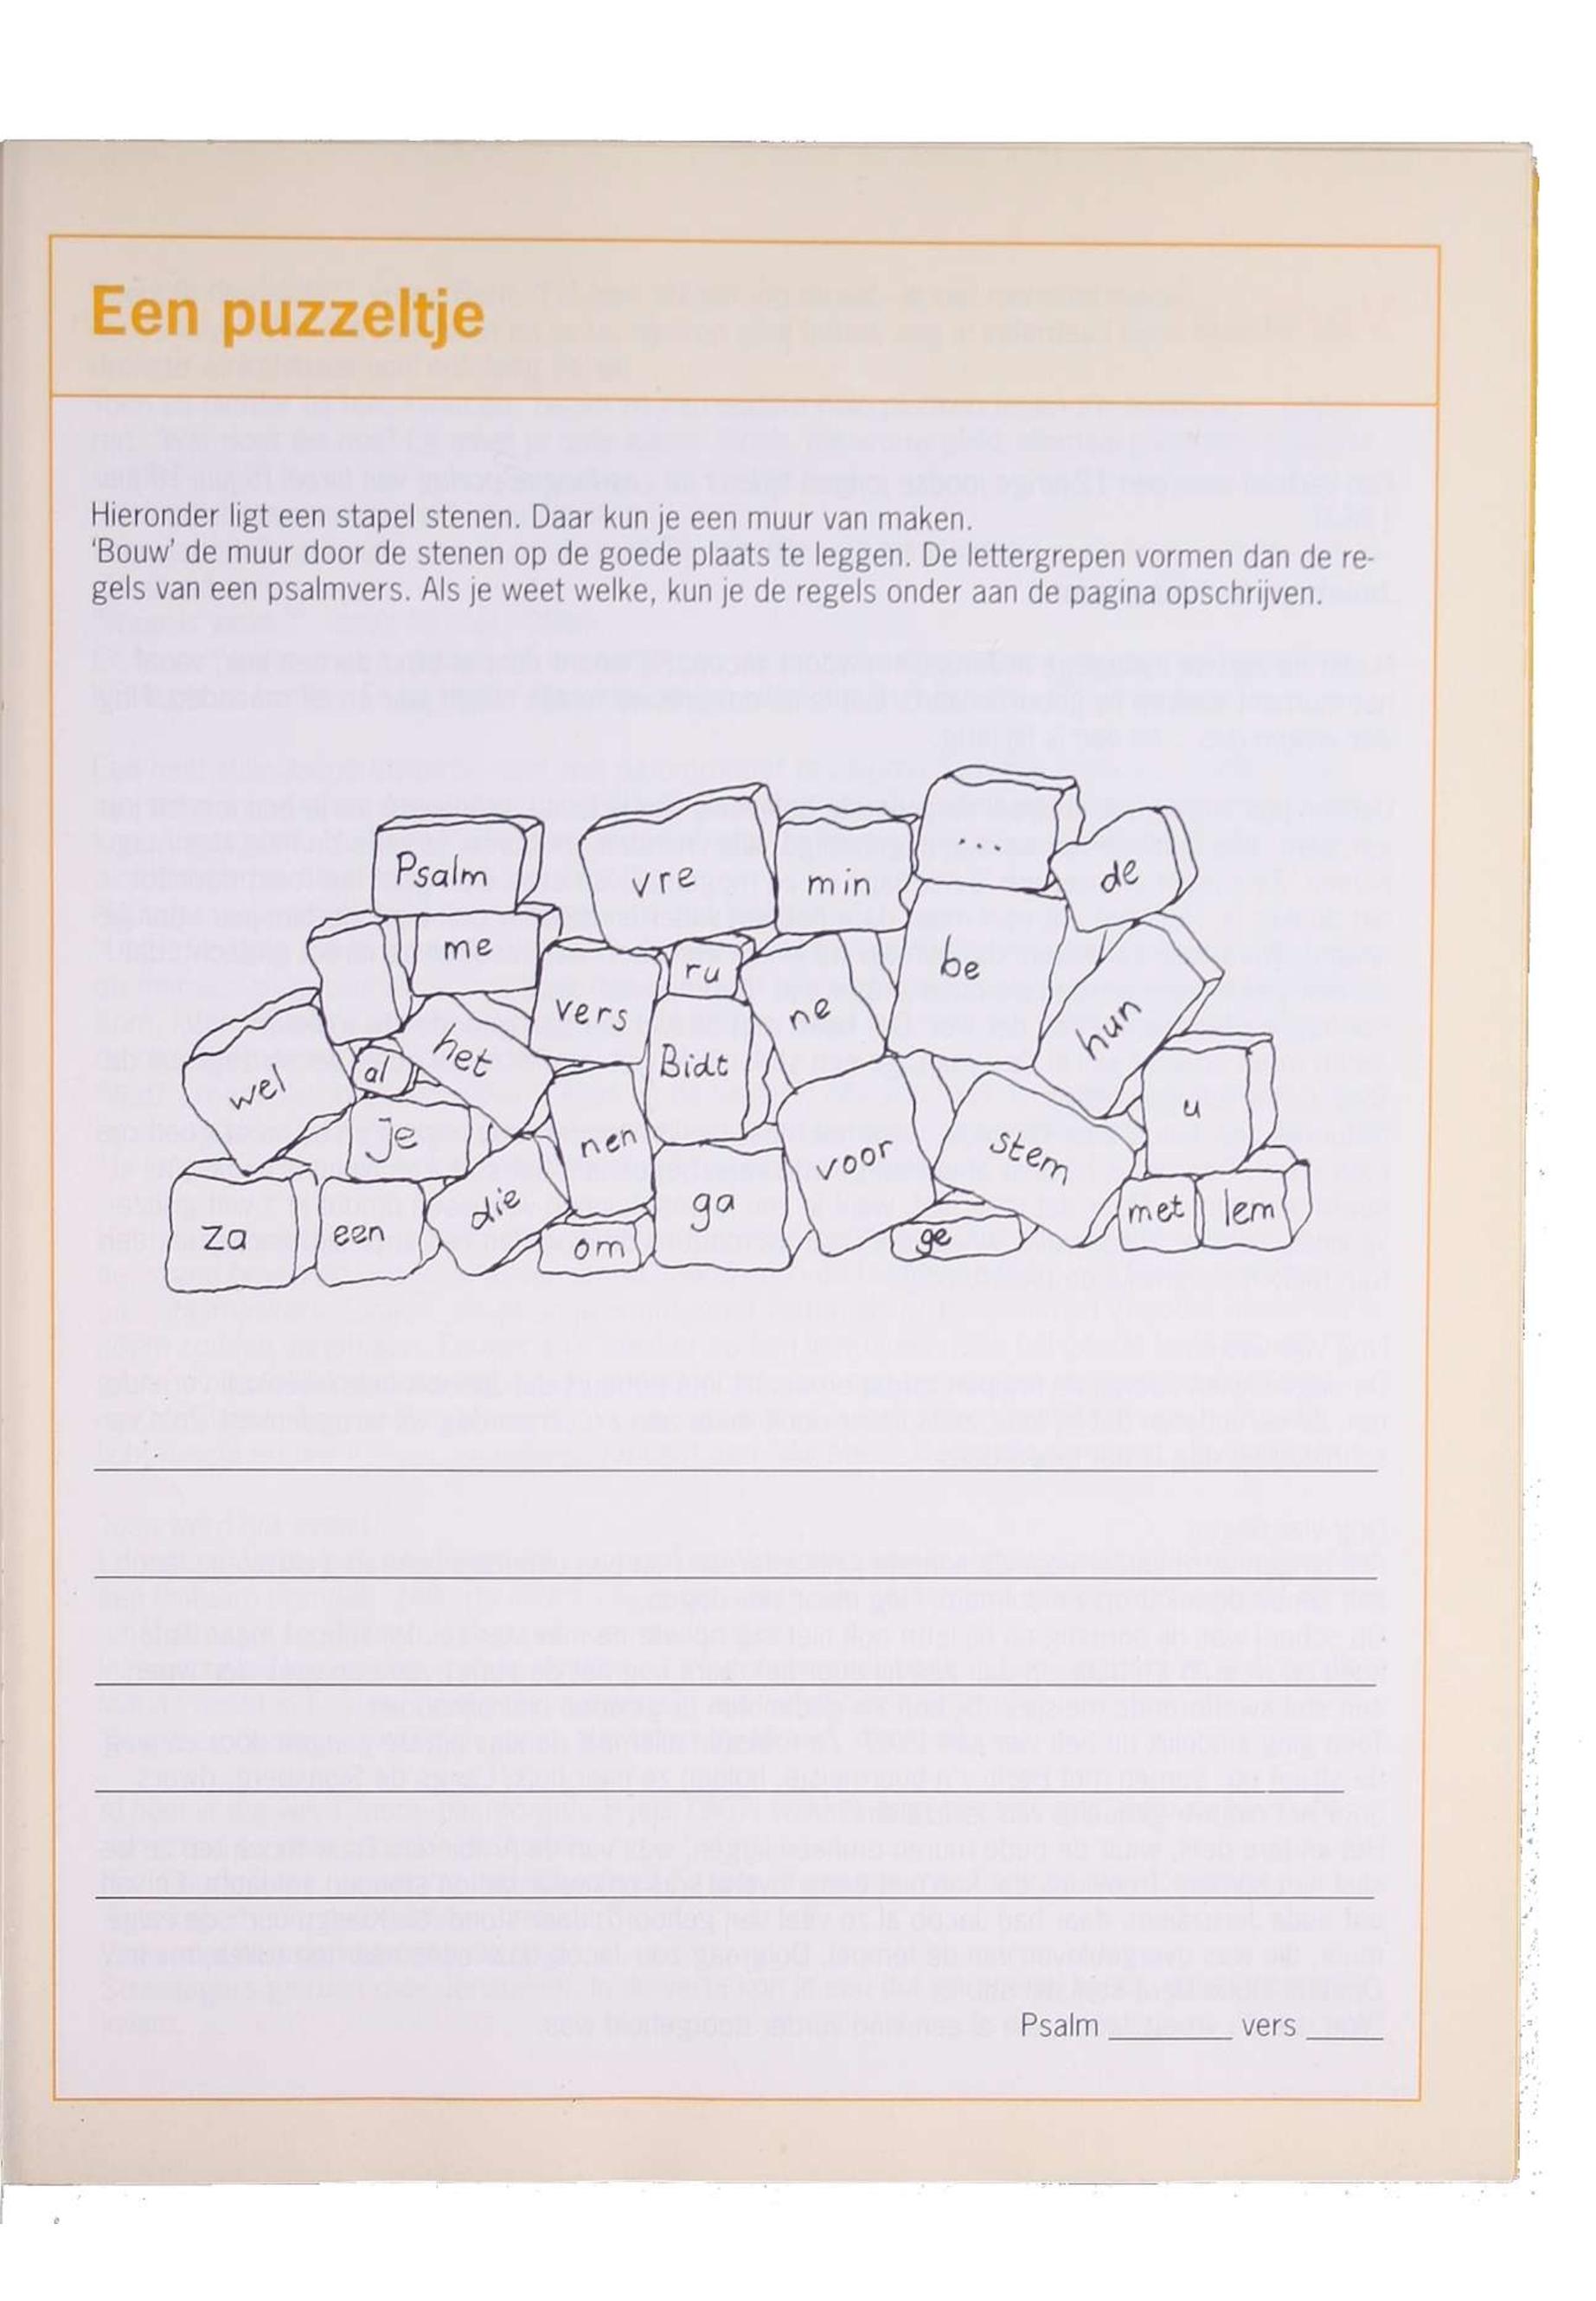 Een puzzeltje
Hieronder ligt een stapel stenen. Daar kun je een muur van maken.
‘Bouw’ de muur door de stenen op de goede plaats te leggen. De lettergrepen vormen dan de re-
gels van een psalmvers. Als je weet welke, kun je de regels onder aan de pagina opschrijven.
...
Psalm vre min de
me ru be
vers ne hun
het Bidt
wel al u
je nen voor stem
za een die om ga ge met lem
Psalm ____ vers ____